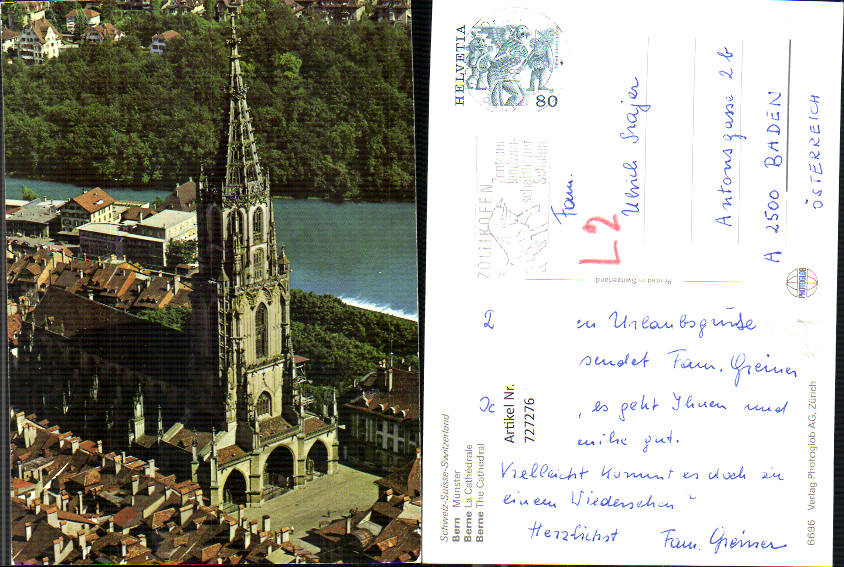 HELVETIA
80
ZOLLIKOFEN
Fam.
Ulrich Srajer
Antonsgasse 2b
A 2500 BADEN
ÖSTERREICH
L2
Printed in Switzerland
PHOTOGLOB
en Urlaubsgrüße
sendet Fam. Greiner
, es geht Ihnen und
milie gut.
Vielleicht kommt es doch zu
einem Wiedersehen"
Herzlichst Fam. Greiner
Artikel Nr.
727276
Schweiz-Suisse-Switzerland
Bern Münster
Berne La Cathédrale
Berne The Cathedral
6696 Verlag Photoglob AG, Zürich